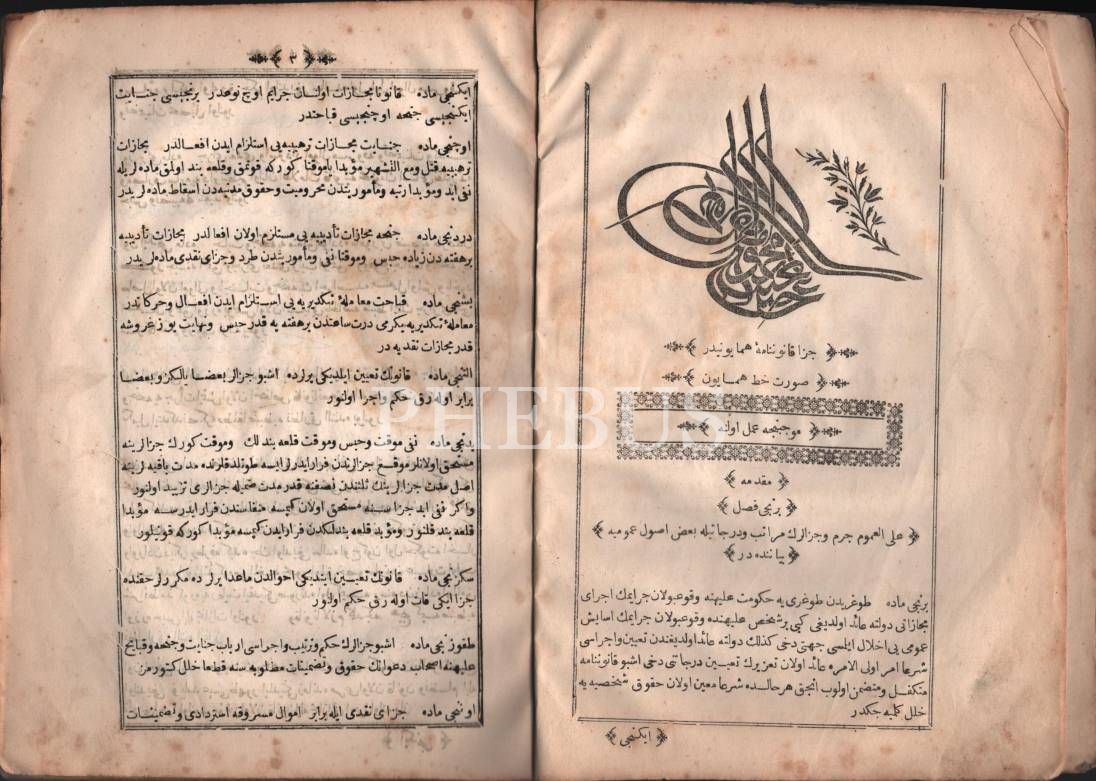 جزا قانوننامهٔ همایونیدر
صورت خط همایون
موجبنجه عمل اولنه
مقدمه
برنجی فصل
علی العموم جرم وجزالرك مراتب ودرجاتیله بعض اصول عمومیه
بیاننده در
برنجی ماده طوغریدن طوغری یه حکومت علیهنه وقوعبولان جرایمك اجرای
مجازاتی دولته عائد اولدیغی کبی بر شخص علیهنده وقوعبولان جرایمك اسایش
عمومی یی اخلال ایلمسی جهتی دخی کذلك دولته عائد اولدیغندن تعیین واجراسی
شرعا امر اولی الامره عائد اولان تعزیرك تعیین درجاتی دخی اشبو قانوننامه
متکفل ومتضمن اولوب انجق هر حالده شرعا معین اولان حقوق شخصیه یه
خلل کلمیه جکدر
ایکنجی
٣
ایکنجی ماده قانونا مجازات اولنان جرایم اوچ نوعدر برنجیسی جنایت
ایکنجیسی جنحه اوچنجیسی قباحتدر
اوچنجی ماده جنایت مجازات ترهیبیه یی استلزام ایدن افعالدر مجازات
ترهیبیه قتل ومع التشهیر مؤبدا یاموقتا کورکه قونمق وقلعه بند اولمق ماده لریله
نفی ابد ومؤبدا رتبه ومأموریتدن محرومیت وحقوق مدنیه دن اسقاط ماده لریدر
دردنجی ماده جنحه مجازات تأدیبیه یی مستلزم اولان افعالدر مجازات تأدیبیه
بر هفته دن زیاده حبس وموقتا نفی ومأموریتدن طرد وجزای نقدی ماده لریدر
بشنجی ماده قباحت معاملهٔ تکدیریه یی استلزام ایدن افعال وحرکاتدر
معاملهٔ تکدیریه یکرمی درت ساعتدن بر هفته یه قدر حبس ونهایت یوز غروشه
قدر مجازات نقدیه در
التنجی ماده قانونك تعیین ایلدیکی یرلرده اشبو جزالر بعضا یالکز وبعضا
برابر اوله رق حکم واجرا اولنور
یدنجی ماده نفی موقت وحبس وموقت قلعه بندلك وموقت کورك جزالرینه
مستحق اولانلر موقع جزالرندن فرار ایدرلر ایسه طوتلدقلرنده مدت باقیه لرینه
اصل مدت جزالرینك ثلثندن نصفنه قدر مدت ضمیله جزالری تزیید اولنور
واکر نفی ابد جزاسنه مستحق اولان کیمسه منفاسندن فرار ایدرسه مؤبدا
قلعه بند قلنور ومؤبد قلعه بندلکدن فرار ایدن کیمسه مؤبدا کورکه قونیلور
سکزنجی ماده قانونك تعیین ایتدیکی احوالدن ماعدا یرلرده مکررلر حقنده
جزا ایکی قات اوله رق حکم اولنور
طقوزنجی ماده اشبو جزالرك حکم وترتیب واجراسی ارباب جنایت وجنحه وقبایح
علیهنه اصحاب دعوانك حقوق وتضمینات مطلوبه سنه قطعا خلل کتورمز
اوننجی ماده جزای نقدی ایله برابر اموال مسروقه استردادی وتضمینات
PHEBUS